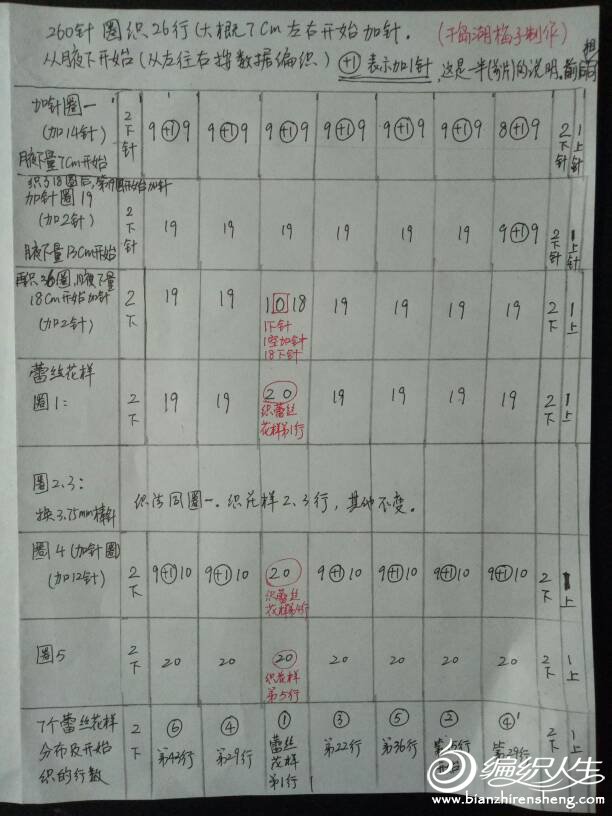 260针 圈织26行(大概7Cm左右开始加针. (千岛湖梅子制作)
从腋下开始(从左往右按数据编织.) (+1)表示加1针,这是一半(1片)的说明.前后相同
加针圈一 2下针 9(+1)9 9(+1)9 9(+1)9 9(+1)9 9(+1)9 9(+1)9 8(+1)9 2下针 1上针
(加14针)
腋下量7Cm开始
织了18圈后,第19圈开始加针
加针圈19 2下针 19 19 19 19 19 19 9(+1)9 2下针 1上针
(加2针)
腋下量13Cm开始
再织36圈,腋下量
18Cm开始加针 2下 19 19 1 0 18 19 19 19 19 2下 1上
(加2针) 1下针
1空加针
18下针
蕾丝花样
圈1: 2下 19 19 20 19 19 19 19 2下 1上
织蕾丝
花样第1行
圈2.3:
换3.75mm棒针 织法同圈一.织花样2、3行,其他不变。
圈4(加针圈) 2下 9(+1)10 9(+1)10 20 9(+1)10 9(+1)10 9(+1)10 9(+1)10 2下 1上
(加12针) 织蕾丝
花样第4行
圈5 2下 20 20 20 20 20 20 20 2下 1上
织花样
第5行
7个蕾丝花样 2下 ⑥ ④ ① ③ ⑤ ② ④ 2下 1上
分布及开始 第43行 第29行 蕾丝 第22行 第36行 第15行 第29行
织的行数 花样
第1行
编织人生
www.bianzhirensheng.com